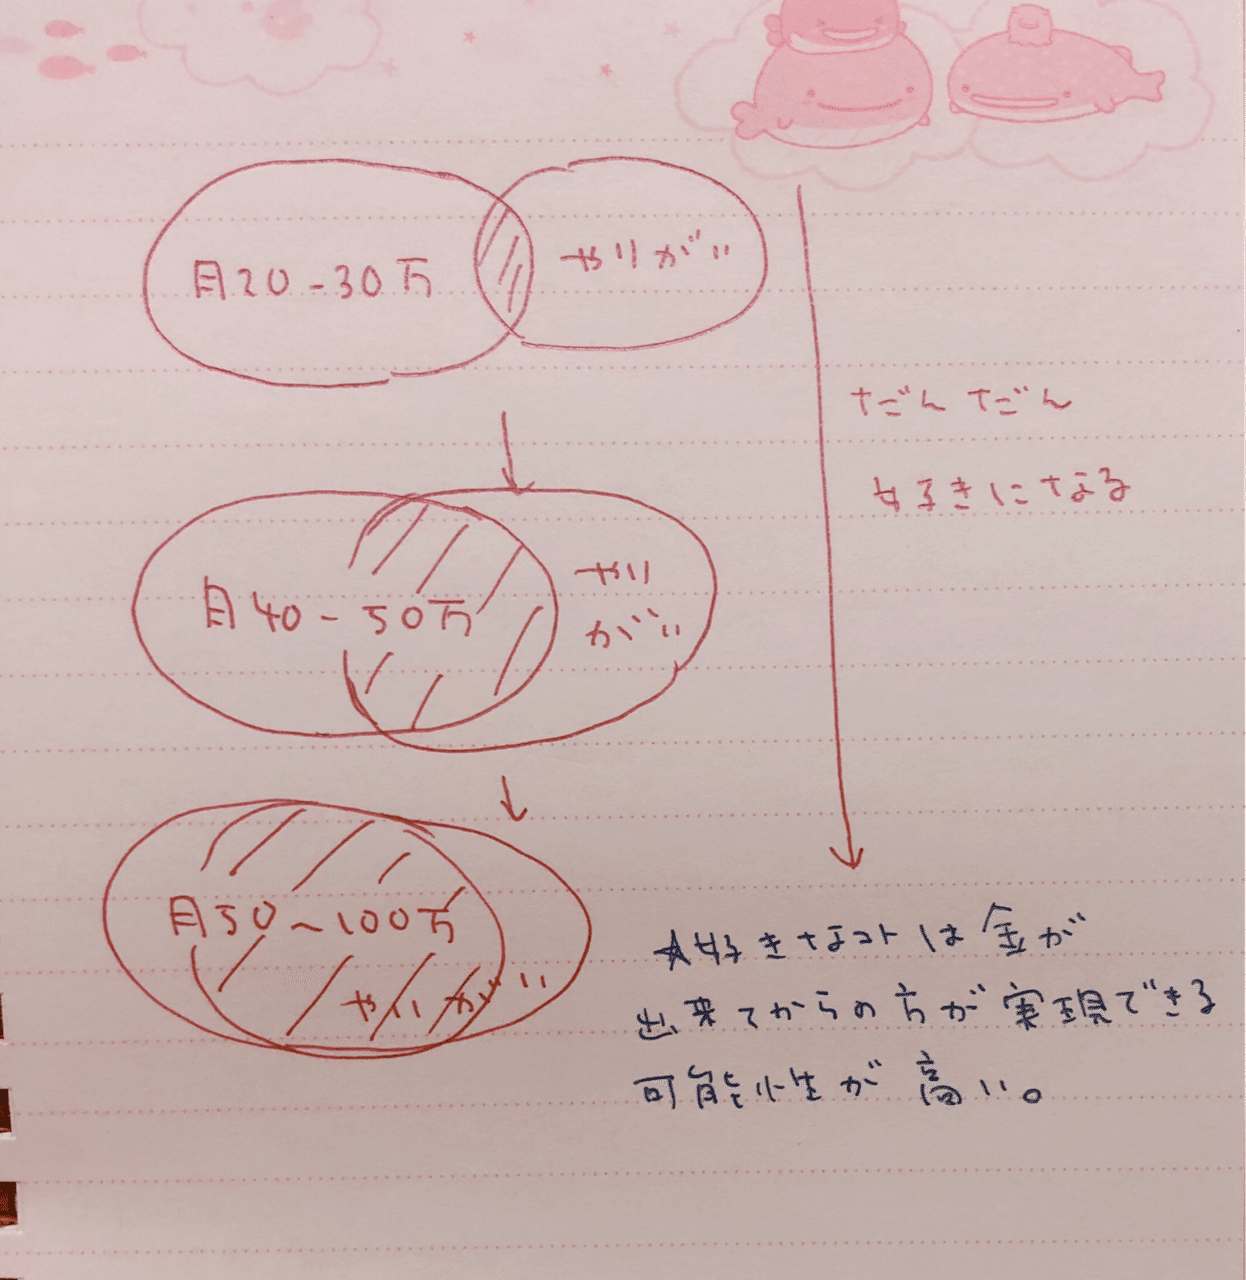 月20-30万
やりがい
だんだん
好きになる
月40-50万
やり
がい
月50~100万
やりがい
☆好きなコトは金が
出来てからの方が実現できる
可能性が高い。